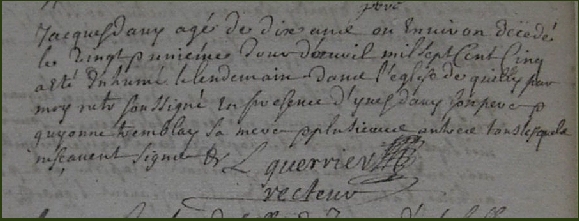 Jacques dauy agé de dix ans ou Environ decedé
le vingt unieme Jour davril mil sept Cent Cinq
a eté Inhumé le lendemain dans l'eglise de quilly par
moy rctr soussigné En presence d'yves dauy son pere
guyonne tremblay sa mere plusieurs autres tous lesquels
ne sçavent signer L guerrier
recteur